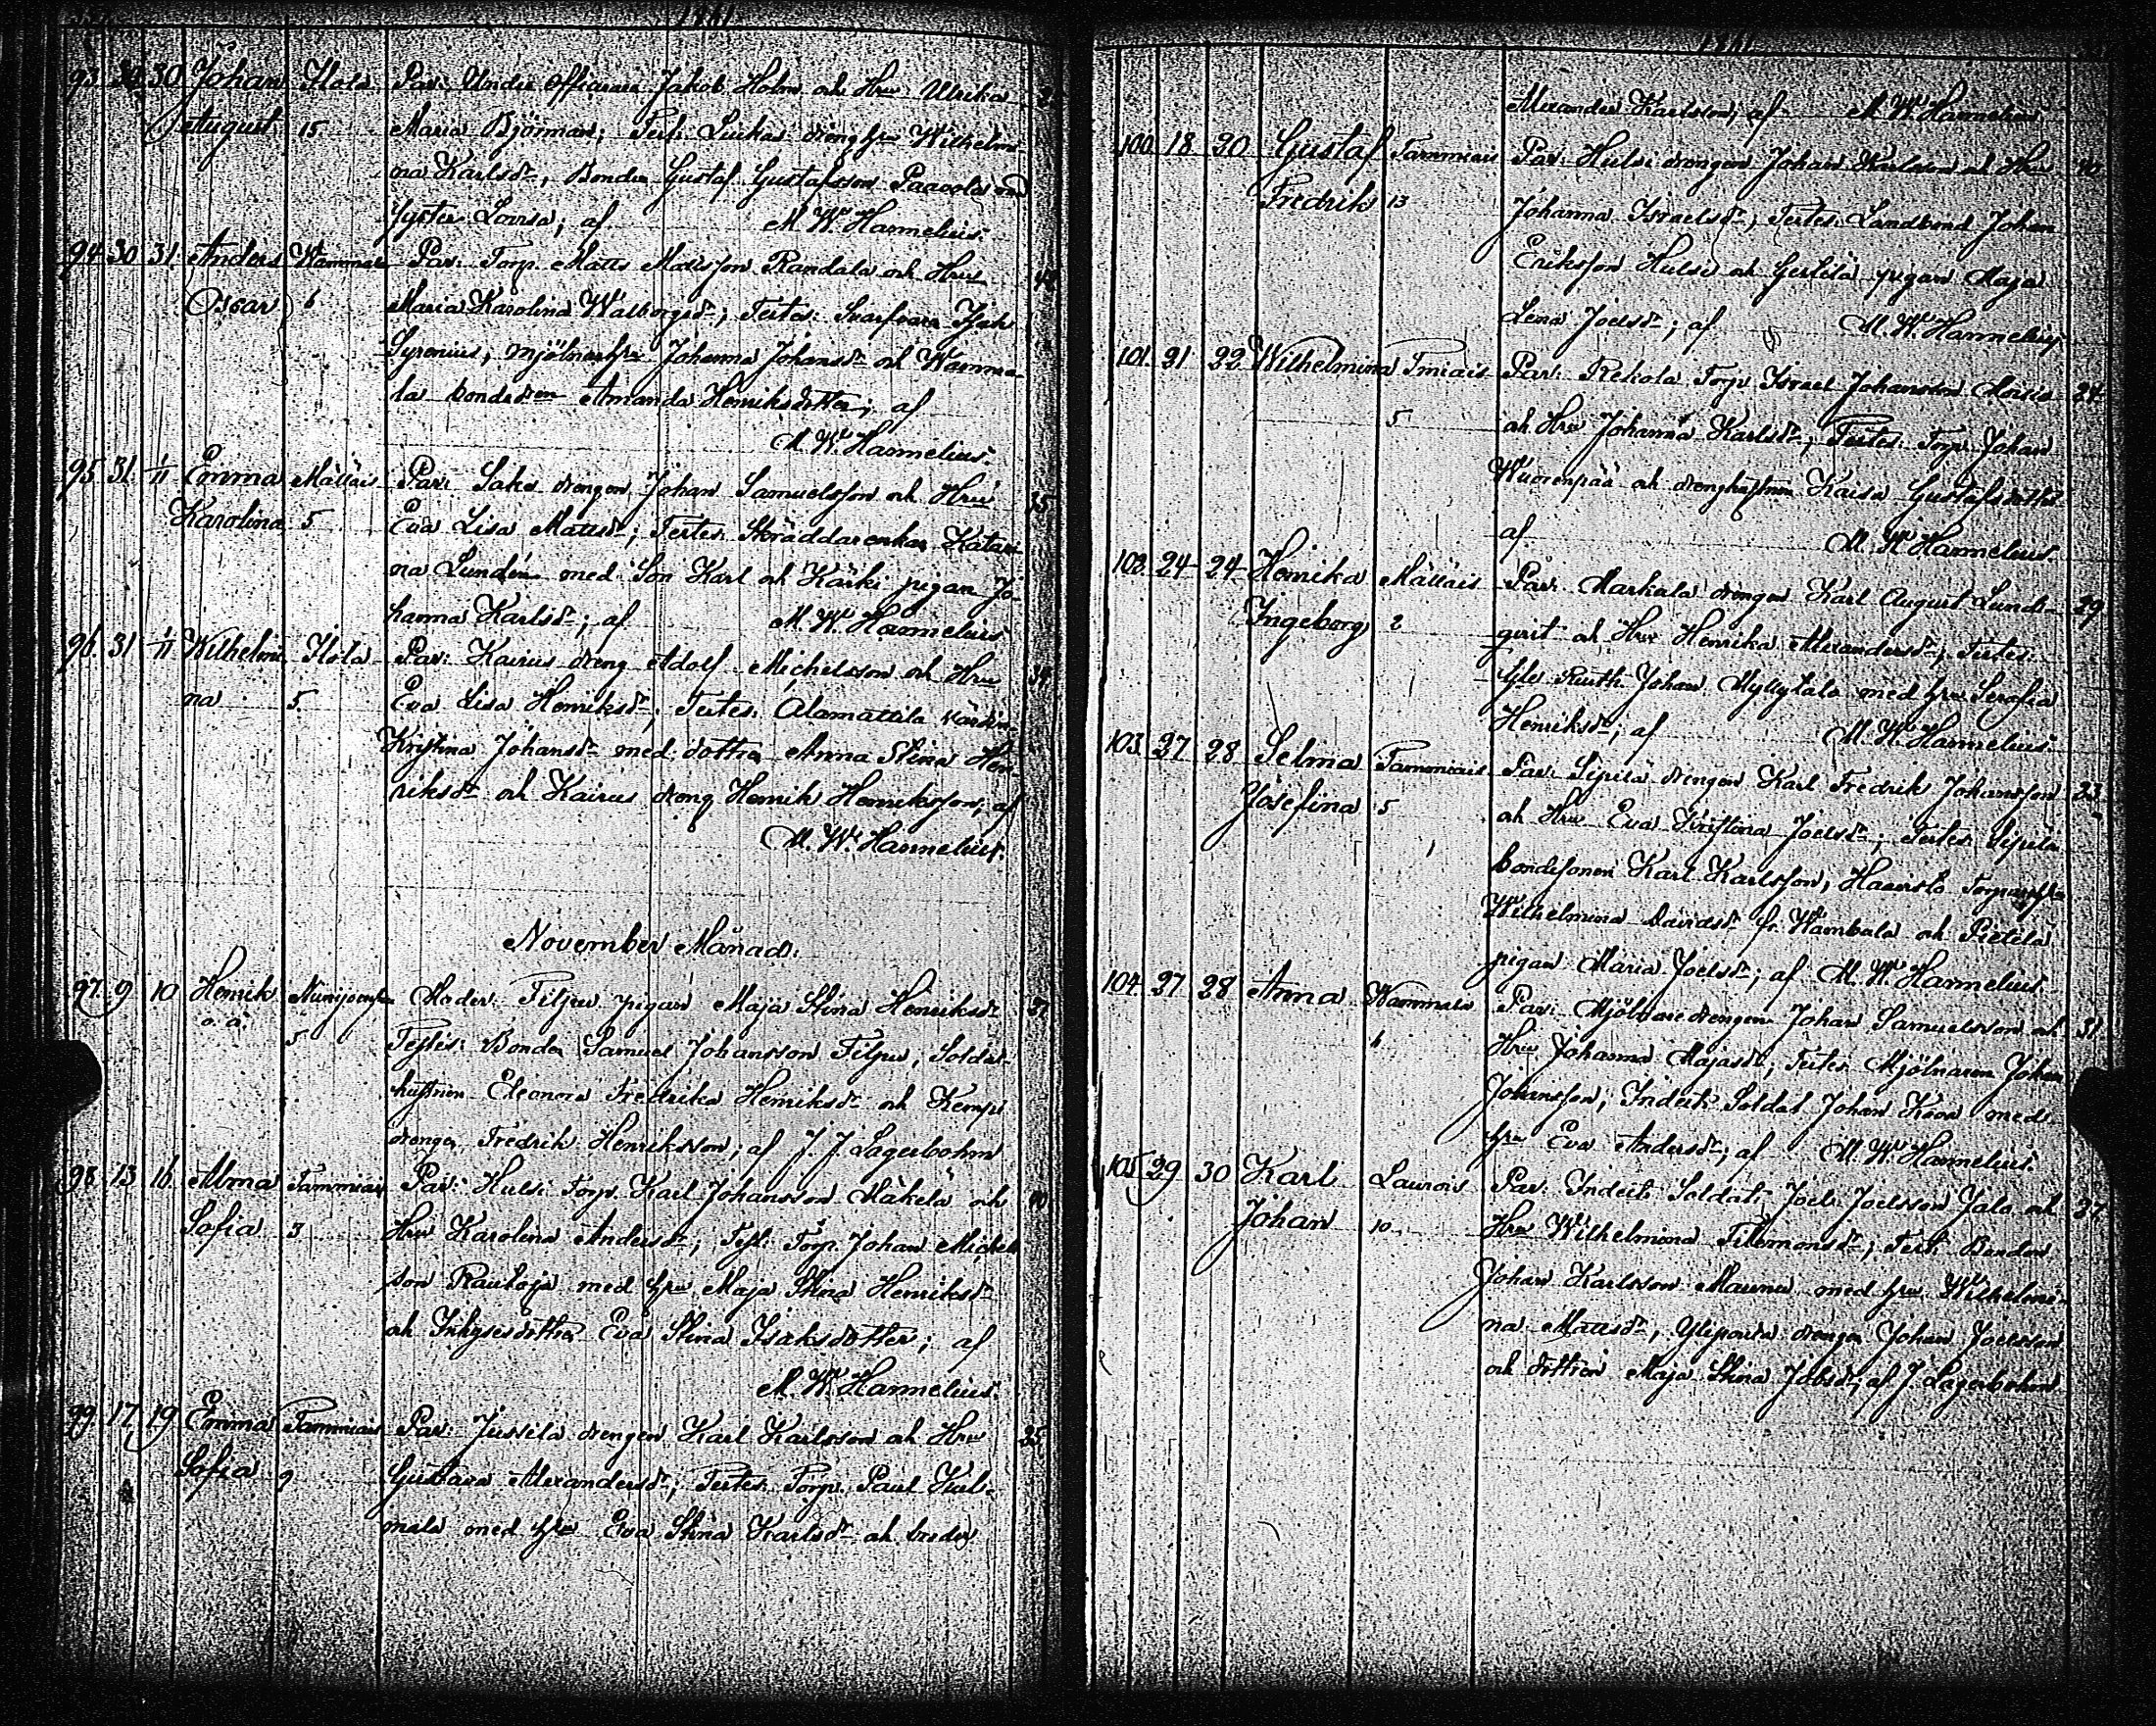 93. 30 30 Johan Ilola Par: Under officeraren Jakob Holm och Hru Ulrika
August 15 Maria Björman; Test: Luika drenghru Wilhelmi-
na Karlsdr, Bonden Gustaf Gustafsson Paavola med
syster Lovisa; af M. W. Hannelius.
94. 30 31 Anders Wammala Par: Torp. Matts Mattsson Randala och Hru
Oscar 6 Maria Karolina Walborgsdr; Testes: Svarfvare Isak
Syrenius, mjölnarhru Johanna Johansdr och Wamma-
la bondedrn Amanda Henriksdotter; af
M. W. Hannelius.
95. 31. 1/11 Emma Mällais Par: Saka drengen Johan Samuelsson och Hru 35
Karolina 5 Eva Lisa Mattsdr; Testes: Skräddarenkan Katari-
na Lundén med Son Karl och Kärki pigan Jo-
hanna Karlsdr; af M. W. Hannelius
96. 31 1/11 Wilhelmi- Ilola Par: Kairus dreng Adolf Michelsson och Hru 34
na 5. Eva Lisa Henriksdr; Testes: Alamattila värdin.
Kristina Johansdr med dotter Anna Stina Hen-
riksdr och Kairus dreng Henrik Henriksson, af
M. W. Hannelius.
November Månad.
97. 9 10 Henrik Moder: Filpu pigan Maja Stina Henriksdr 27
o. ä. 5 Testis: Bonden Samuel Johansson Filpu, Soldat
hustrun Eleonora Fredrika Henriksdr och Kempi
drengen Fredrik Henriksson; af J. J. Lagerbohm
98. 13 16 Alma Tammiais Par: Hulsi Torp. Karl Johansson Mäkelä och 40
Sofia 3 Hru Karolina Andersdr; Test: Torp. Johan Michels
son Rautoja med hru Maja Stina Henriksdr
och Inhysesdotter Eva Stina Isaksdotter; af
M. W. Hannelius.
99. 17 19 Emma Tammiais Par: Jussila drengen Karl Karlsson och Hru 25
Sofia 9 Gustava Alexandersdr; Testes: Torp. Paul Kul-
mala med hru Eva Stina Karlsdr och broder
Alexander Karlsson; af M. W. Hannelius
100. 18 20 Gustaf Tammiais Par: Hulsi drengen Johan Karlsson och Hru 40
Fredrik 13 Johanna Israelsdr; Testes: Landbond Johan
Eriksson Hulsi och Gertilä pigan Maja
Lena Joelsdr; af M. W. Hannelius
101. 21 22 Wilhelmina Tmiais Par: Rekola Torp. Israel Johansson Moisio 24
5 och Hru Johanna Karlsdr; Testes: Torp. Johan
Wuorenpää och drenghustrun Kaisa Gustafsdotter
af M. W. Hannelius.
102. 24 24 Henrika Mällais Par: Markula drengen Karl August Lund- 29
Ingeborg 2 qvist och Hru Henrika Alexandersdr; Testes:
Johan Myllytalo med hru Serafia
Henriksdr; af M. W. Hannelius.
103. 27 28 Selma Tammiais Par: Sipilä drengen Karl Fredrik Johansson 23
Josefina 5 och Hru Eva Kristina Joelsdr; Testes: Sipilä
bondesonen Karl Karlsson, Haavisto Torparehru
Wilhelmina Davidsdr fr. Wambula och Pietilä
pigan Maria Joelsdr; af M. W. Hannelius.
104. 27 28 Anna Wammala Par: Mjölnaredrengen Johan Samuelsson och 31
6 Hru Johanna Majasdr; Testes: Mjölnaren Johan
Johansson, Indelt: Soldat Johan Kova med
hru Eva Andersdr; af M. W. Hannelius.
105. 29 30 Karl Laurois Par: Indelt: Soldat: Joel Joelsson Jalo och 27
Johan 10 Hru Wilhelmina Filemonsdr; Test: Bonden
Johan Karlsson Maunu med hru Wilhelmi-
na Mattsdr, drengen Johan Joelsson
och dottren Maja Stina af J. Lagerbohm.